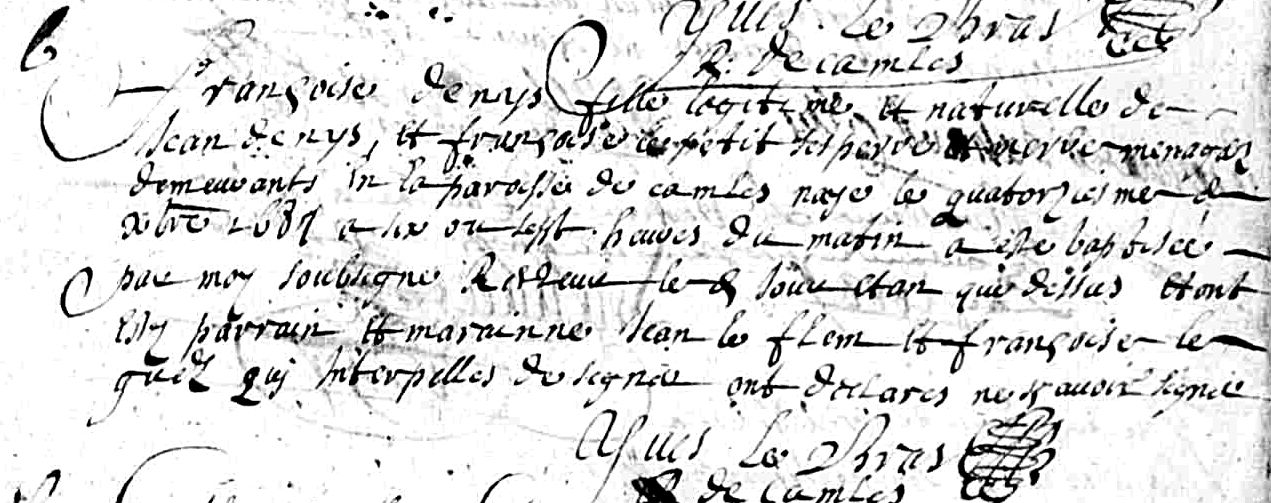 Yves Le Dhras
R: de camles
b
françoise denys fille legitime et naturelle de
Jean denys, et françoise le petit ses pere et mere menagers
demeurants en la paroisse de camles naye le quatorziesme de
xbre 1687 a six ou sept heures du matin a este baptisée
par moy soubsigne Recteur les jour et an que dessus et ont
esty parrain et marainne Jean le flem et françoise le
guel qui interpelles de signer ont declares ne scavoir signer
Yves Le Dhras
R de camles